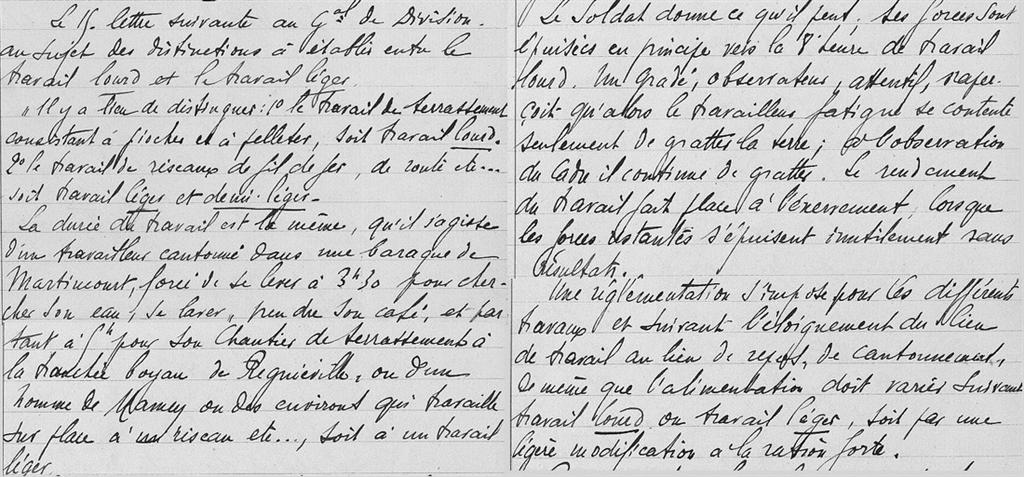 Le 15. lettre suivante au Gal de Division.
au sujet des distinctions à établir entre le
travail lourd et le travail léger.
" Il y a lieu de distinguer : 1º le travail de terrassement
consistant à piocher et à pelleter, soit travail lourd.
2º le travail de réseaux de fil de fer, de route etc...
soit travail léger et demi-léger.
La durée du travail est la même, qu'il s'agisse
d'un travailleur cantonné dans une baraque de
Martincourt, forcé de se lever à 3h30 pour cher-
cher son eau, se laver, prendre son café, et par
tant à 5h pour son chantier de terrassements à
la tranchée boyau de Regniéville, ou d'un
homme de Mamey ou des environs qui travaille
sur place à un réseau etc..., soit à un travail
léger.
Le Soldat donne ce qu'il peut. Ses forces sont
épuisées en principe vers la 8e heure de travail
lourd. Un gradé, observateur, attentif, s'aper-
çoit qu'alors le travailleur fatigué se contente
seulement de gratter la terre ; à l'observation
du Cadre il continue de gratter. Le rendement
du travail fait place à l'énervement, lorsque
les forces restantes s'épuisent inutilement sans
résultats.
Une réglementation s'impose pour les différents
travaux et suivant l'éloignement du lieu
de travail au lieu de repos, de cantonnement,
de même que l'alimentation doit varier suivant
travail lourd ou travail léger, soit par une
légère modification à la ration forte.